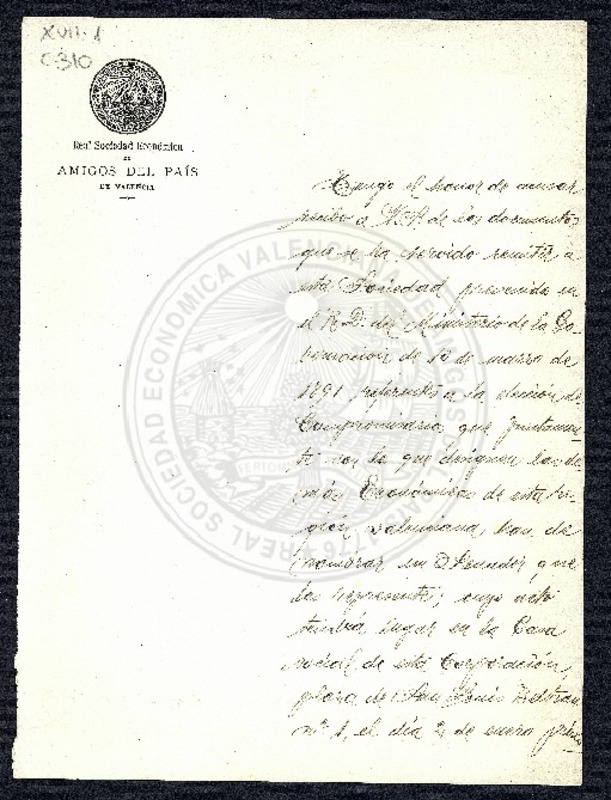 XVII-1
C-310
Real Sociedad Económica
DE
AMIGOS DEL PAÍS
DE VALENCIA
Tengo el honor de acusar
recibo a V. de los documentos
que se ha servido remitir a
esta Sociedad, prevenido en
el R. D. del Ministerio de la Go-
bernación de 12 de marzo de
1891 referentes a la elección de
Compromisario que juntamen-
te con los que designen las de-
más Económicas de esta re-
gión valenciana, han de
nombrar un Senador que
las represente; cuyo acto
tendrá lugar en la Casa
social de esta Corporación,
plaza de San Luis Beltran
nº 1, el día 2 de enero próxi
REAL SOCIEDAD ECONOMICA VALENCIANA DE AMIGOS